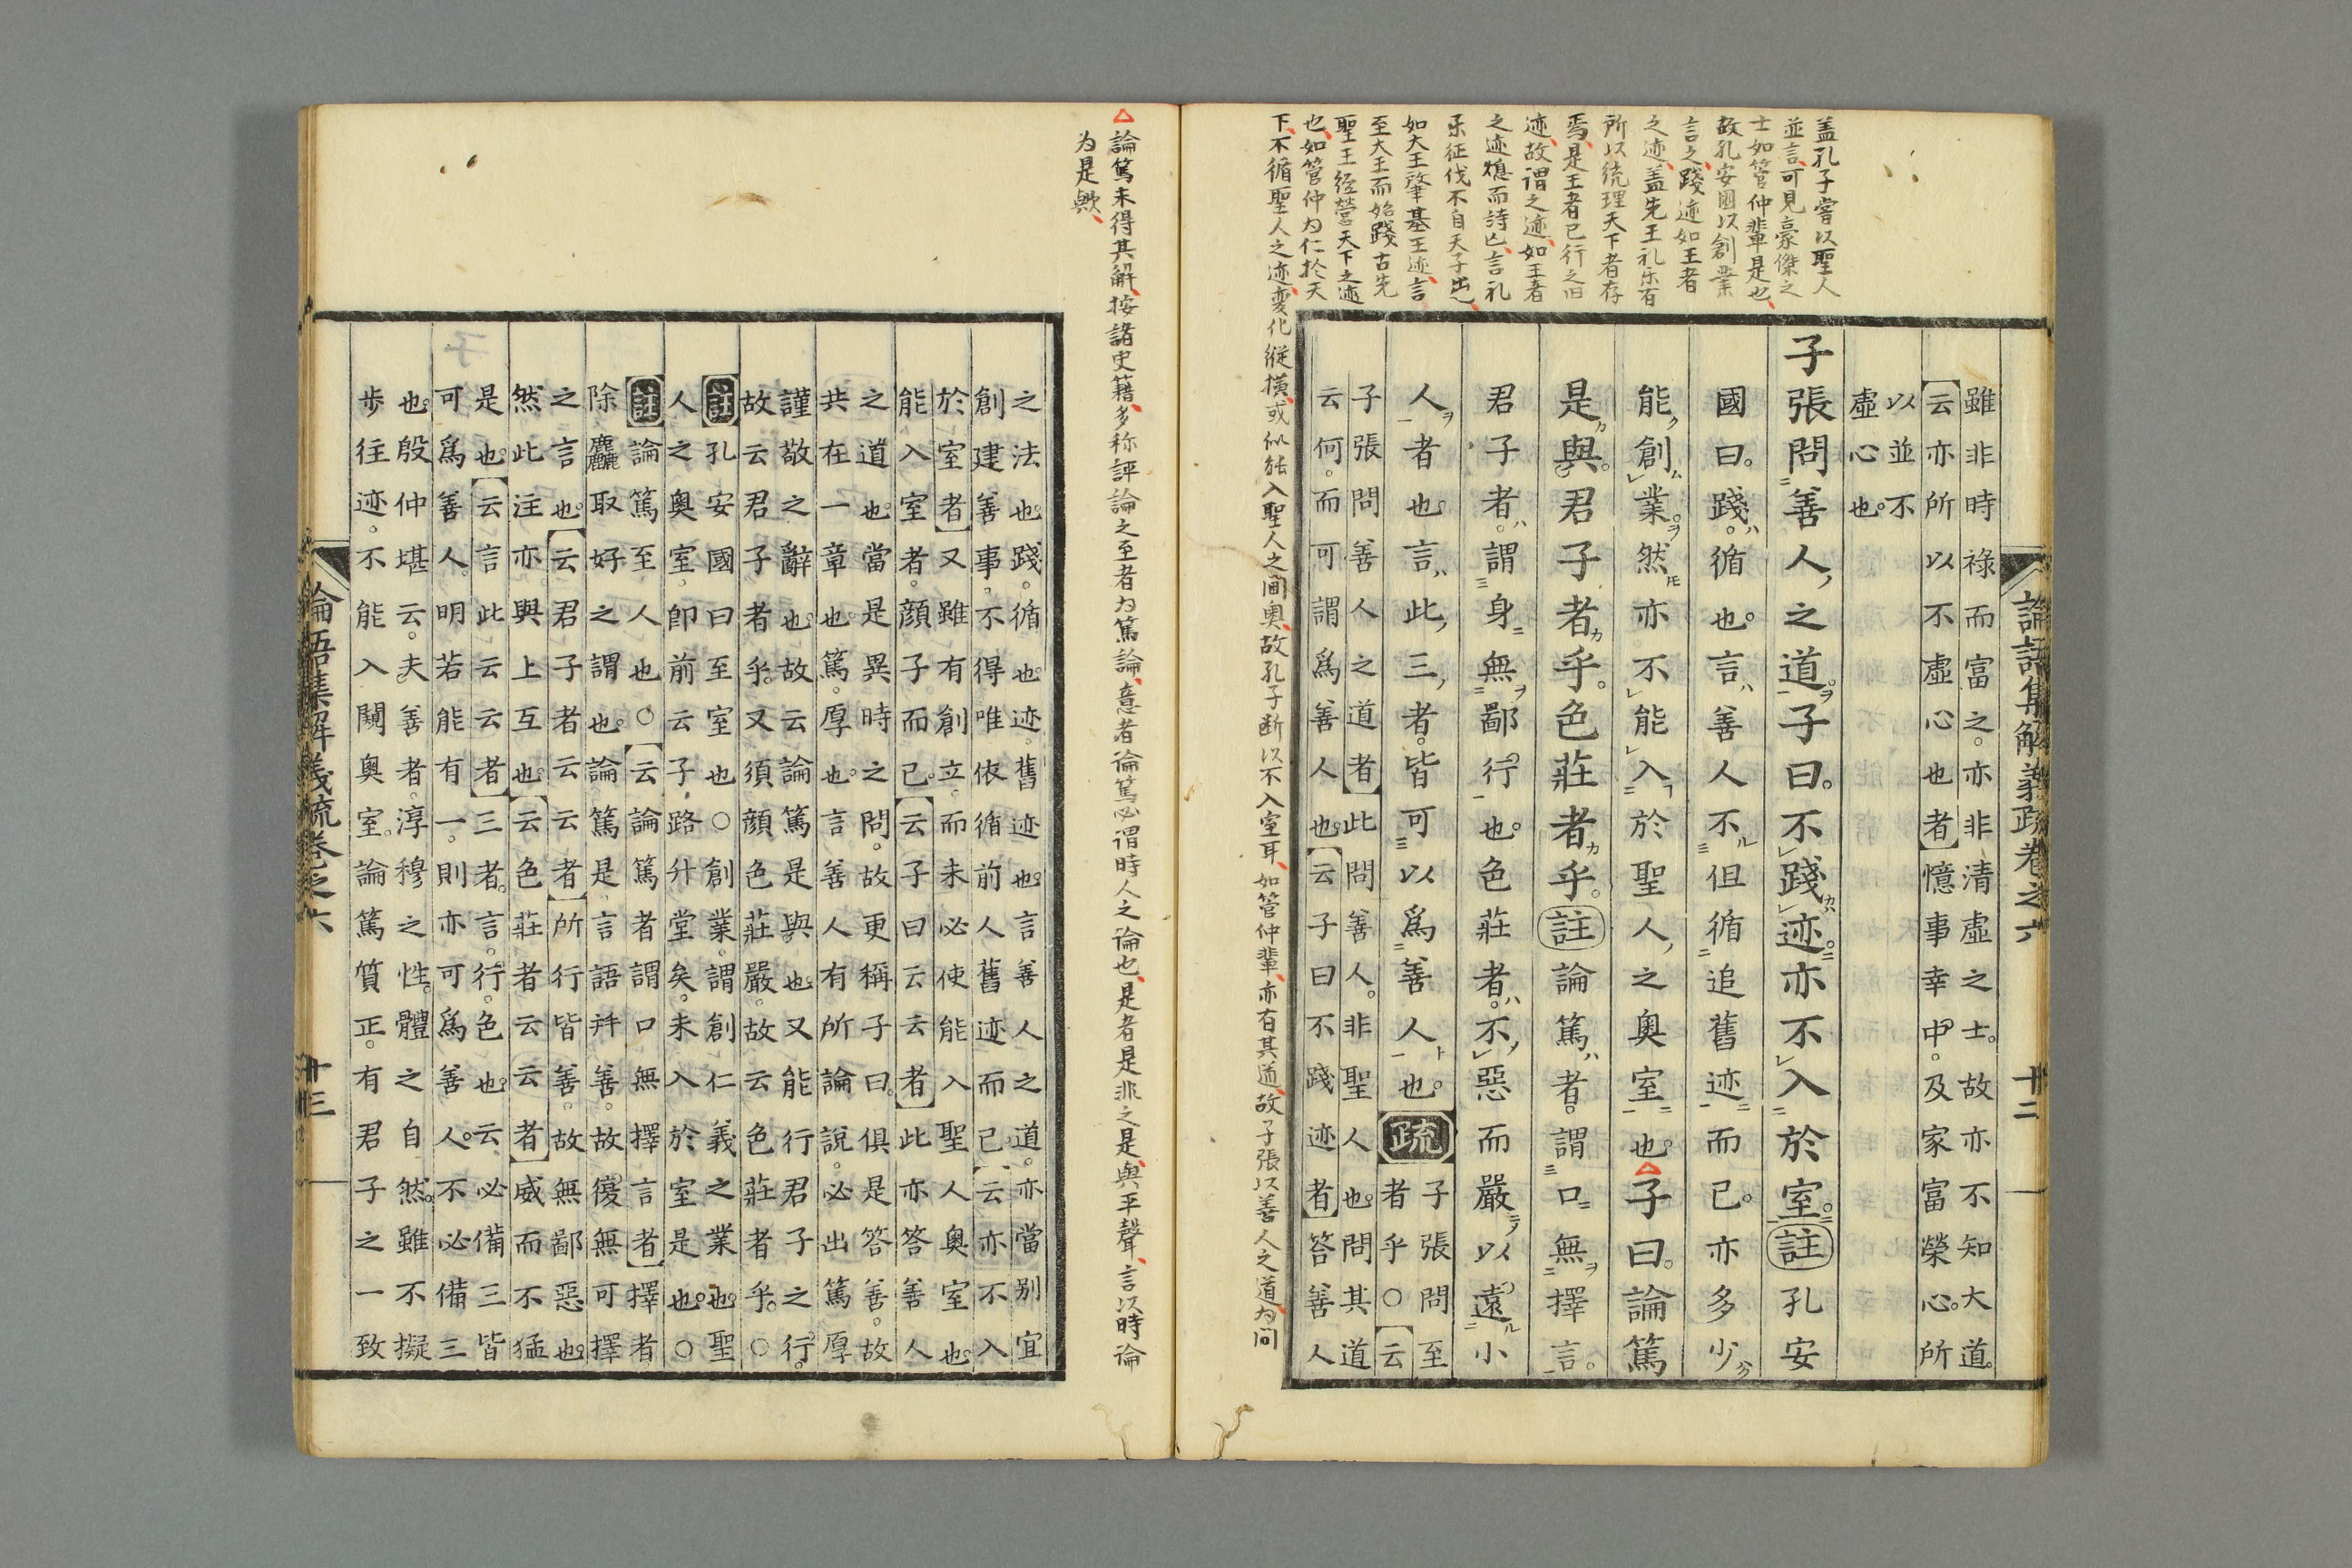 蓋孔子嘗以聖人
並言可見豪傑之
士如管仲輩是也
故孔安國以創業
言之踐迹如王者
之迹蓋先王礼乐有
所以統理天下者存
焉是王者已行之旧
迹故謂之迹如王者
之迹熄而詩亡言礼
乐征伐不自天子出也
如大王肇基王迹言
至大王而始踐古先
聖王経営天下之迹
也如管仲为仁於天
下不循聖人之迹変化縦横或似能入聖人之閫奥故孔子断以不入室耳如管仲輩亦有其道故子張以善人之道为問
論語集解義疏卷之六 十二
雖非時祿而富之。亦非清虛之士。故亦不知大道。
云亦所以不虛心也者憶事幸中。及家富榮心。所
以並不
虛心也。
子張問善人之道。子曰。不踐迹。亦不入於室。註孔安
國曰。踐。循也。言善人不但循追舊迹而已。亦多少
能創業。然亦不能入於聖人之奧室也。子曰。論篤
是與。君子者乎。色莊者乎。註論篤者。謂口無擇言。
君子者。謂身無鄙行也。色莊者。不惡而嚴。以遠小
人者也。言此三者。皆可以爲善人也。疏子張問至
者乎○云
子張問善人之道者此問善人。非聖人也。問其道
云何。而可謂爲善人也。云子曰不踐迹者答善人
△論篤未得其解按諸史籍多称評論之至者为篤論意者論篤必謂時人之論也是者是非之是與平聲言以時論
为是歟
之法也。踐。循也。迹。舊迹也。言善人之道。亦當別宜
創建善事。不得唯依循前人舊迹而已。云亦不入
於室者又雖有創立。而未必使能入聖人奧室也。
能入室者。顔子而已。云子曰云云者此亦答善人
之道也。當是異時之問。故更稱子曰。俱是答善。故
共在一章也。篤。厚也。言善人有所論說。必出篤厚
謹敬之辭也。故云論篤是與也。又能行君子之行。
故云君子者乎。又須顔色莊嚴。故云色莊者乎。○
註孔安國曰至室也○創業。謂創仁義之業也。聖
人之奧室。卽前云子路升堂矣。未入於室是也。○
註論篤至人也○云論篤者謂口無擇言者擇者
除麤取好之謂也。論篤是言語幷善。故復無可擇
之言也。云君子者云云者所行皆善。故無鄙惡也。
然此注亦與上互也。云色莊者云云者威而不猛
是也。云言此云云者三者。言。行。色也。云必備三皆
可爲善人。明若能有一。則亦可爲善人。不必備三
也。殷仲堪云。夫善者。淳穆之性。體之自然。雖不擬
步往迹。不能入闚奧室。論篤質正。有君子之一致
論語集解義疏卷之六 十三